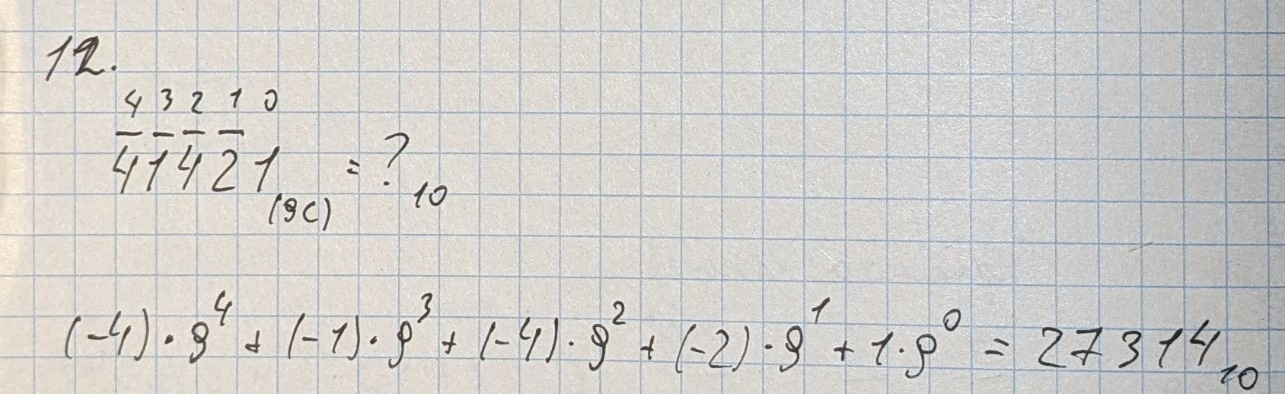 12.
4 3 2 1 0
4̅1̅4̅2̅1₍₉c₎ = ?₁₀
(-4)·9⁴ + (-1)·9³ + (-4)·9² + (-2)·9¹ + 1·9⁰ = 27314₁₀